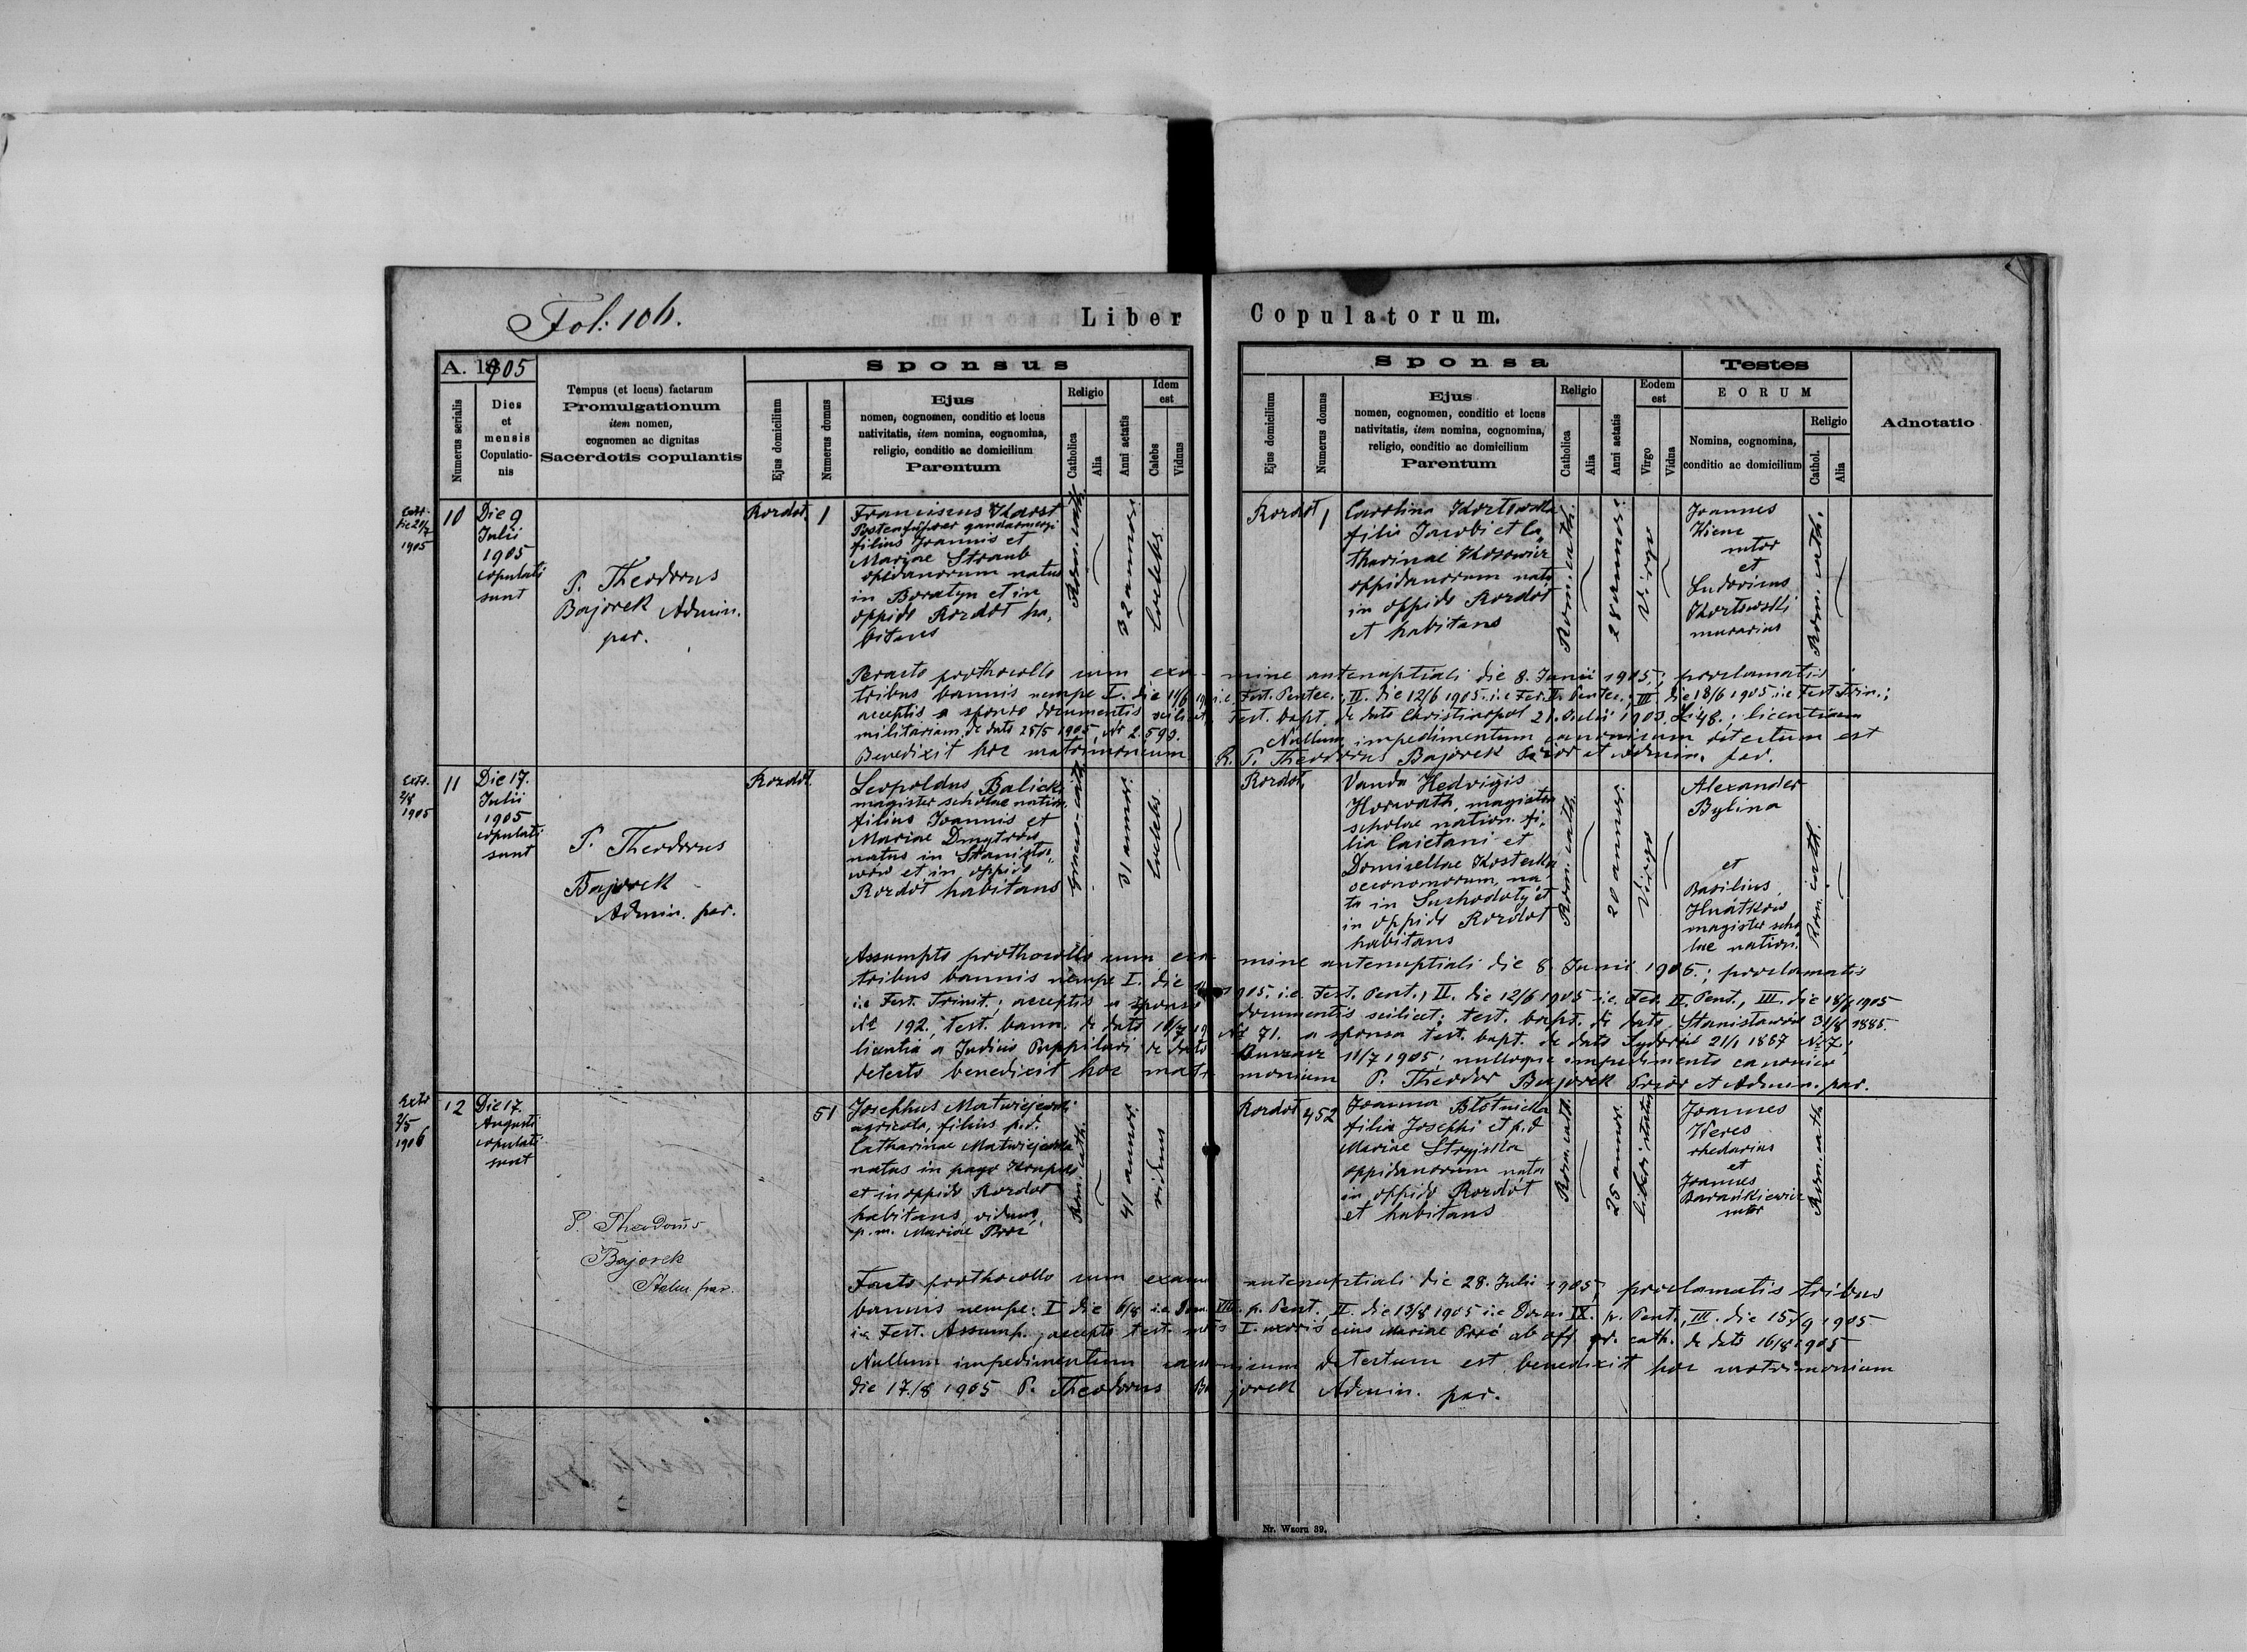 Fol: 106.
Liber Copulatorum.
A. 1905
Numerus serialis
Dies
et
mensis
Copulatio-
nis
Tempus (et locus) factarum
Promulgationum
item nomen,
cognomen ac dignitas
Sacerdotis copulantis
Sponsus
Ejus domicilium
Numerus domus
Ejus
nomen, cognomen, conditio et locus
nativitatis, item nomina, cognomina,
religio, conditio ac domicilium
Parentum
Religio
Catholica
Alia
Anni aetatis
Idem
est
Calebs
Viduus
Sponsa
Ejus domicilium
Numerus domus
Ejus
nomen, cognomen, conditio et locus
nativitatis, item nomina, cognomina,
religio, conditio ac domicilium
Parentum
Religio
Catholica
Alia
Anni aetatis
Eodem
est
Virgo
Vidua
Testes
EORUM
Nomina, cognomina,
conditio ac domicilium
Religio
Cathol.
Alia
Adnotatio
Extr.
die 20/7
1905
10
Die 9
Julii
1905
copulati
sunt
P. Theodorus
Bajorek Admin.
par.
Rozdół.
1
Franciscus Karst
Postenführer gandarmerzi
filius Joannis et
Mariae Straub
opidanorum natus
in Boratyn et in
oppido Rozdół ha,
bitans
Rom. cath.
32 annors.
Coelebs.
Rozdół
1
Carolina Kortowska
filia Jacobi et Ca,
tharinae Kosowicz
oppidanorum nata
in oppido Rozdół
et habitans
Rom. cath.
28 annors.
Virgo
Joannes
Wiene
sutor
et
Ludovicus
Kortowski
murarius
Rom. cath.
Peracto prothocollo cum exa- mine antenuptiali die 8. Junii 1905.; proclamatis
tribus bannis nempe I. die 11/6 i.e. Fest. Pentec., II. die 12/6 1905. i.e Fer. II. Pentec.; III die 18/6 1905 i.e Fest Trin.;
acceptis a sponso documentis scilicet, Test. bapt. de dato Christinopol 21. Julii 1903. L: 48.; licentiam
militariam de dato 25/5 1905, № 2.593. Nullum impedimentum canonicum detectum est
Benedixit hoc matrimonium R. P. Theodorus Bajorek Prior et admin. par.
Extr.
2/8
1905
11
Die 17.
Julii
1905
copulati
sunt
P. Theodorus
Bajorek
Admin. par.
Rozdół.
Leopoldus Balicki
magister scholae nation.
filius Joannis et
Mariae Dmytrów
natus in Stanisła,
wów et in oppido
Rozdół habitans
Graeco-cath.
31 annor.
Coelebs.
Rozdół,
Vanda Hedvigis
Horwath, magistra
scholae nation. fi,
lia Caietani et
Domicellae Kostecka
oeconomorum, na,
ta in Suchodoły et
in oppido Rozdół
habitans
Rom. cath.
20 annors.
Virgo
Alexander
Bylina
et
Basilius
Hnátków
magister scho,
lae nation.
Rom. cath.
Assumpto prothocollo cum exa- mine antenuptiali die 8 Junii 1905.; proclamatis
tribus bannis nempe I. die 1905. i.e. Fest. Pent., II. die 12/6 1905 i.e. Fer. II. Pent., III. die 18/6 1905
i.e Fest. Trinit.; acceptis a sponso documentis scilicet: test. bapt. de dato Stanisławów 31/8 1885.
№ 192, Test. bann. de dato 16/7 № 71. a sponsa test. bapt. de dato 21/1 1887 № 7;
licentia a Judicio Puppilari de dato 11/7 1905; nulloque impedimento canonico
detecto benedixit hoc matri monium P. Theodor Bajorek Prior et Admin. par.
Extr
2/5
1906
12
Die 17.
Augusti
copulati
sunt
P. Theodorus
Bajorek
Admin. par.
51
Josephus Matwiejewski
agricola, filius p.d.
Catharinae Matwiejewska
natus in pago Krupsko
et in oppido Rozdół
habitans, viduus
p. m. Mariae Proc
Rom. cath.
41 annor.
viduus
Rozdół
452
Joanna Błotnicka
filia Josephi et p.d
Mariae Stryjska
oppidanorum nata
in oppido Rozdół
et habitans
Rom. cath.
25 annor.
liberi status
Joannes
Weres
rhedarius
et
Joannes
Barankiewicz
sutor
Rom. cath
Facto prothocollo cum exami antenuptiali die 28. Julii 1905, proclamatis tribus
bannis nempe: I die 6/8 i.e. Dom. VIII. p. Pent., II. die 13/8 1905 i.e Dom IX. p. Pent., III. die 15/9 1905
i.e Fest. Assump., accepto test. mortis I. uxoris eius Mariae Proc ab off gr. cath. de dato 16/8 1905
Nullum impedimentum canonicum detectum est, benedixit hoc matrimonium
die 17./8 1905 P. Theodorus Bajorek Admin. par.
Nr. Wzoru 39.